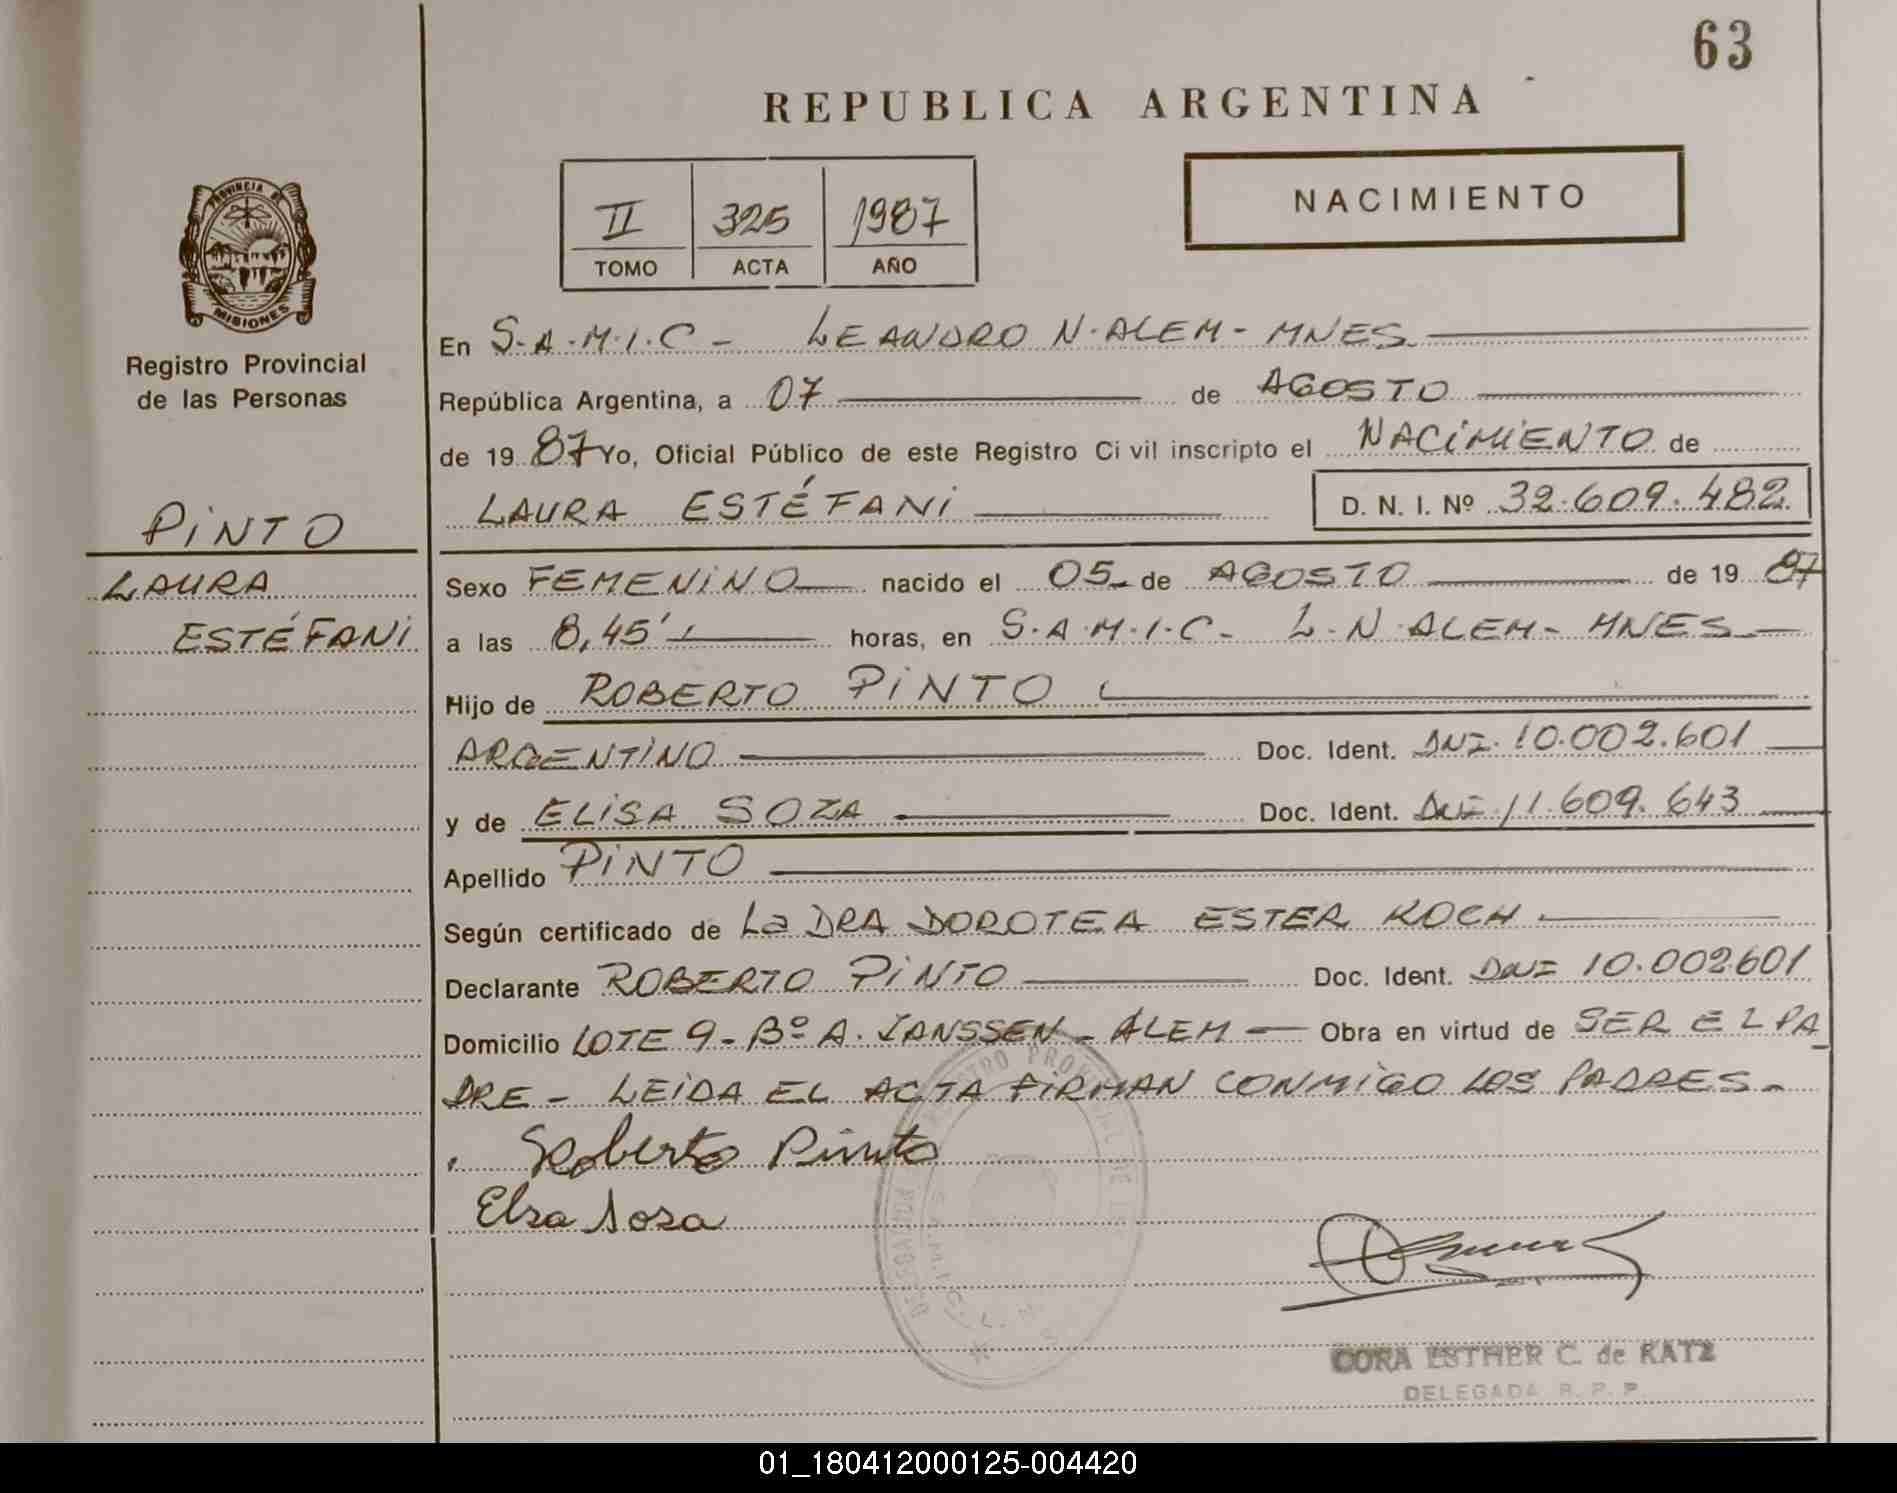 63
REPUBLICA ARGENTINA
NACIMIENTO
II 325 1987
TOMO ACTA AÑO
PROVINCIA DE
MISIONES
Registro Provincial
de las Personas
PINTO
LAURA
ESTÉFANI
En S.A.M.I.C - LEANDRO N. ALEM - MNES.
República Argentina, a 07 de AGOSTO
de 19 87 Yo, Oficial Público de este Registro Civil inscripto el NACIMIENTO de
LAURA ESTÉFANI D. N. I. Nº 32.609.482
Sexo FEMENINO nacido el 05 de AGOSTO de 19 87
a las 8,45' horas, en S.A.M.I.C - L.N. ALEM - MNES
Hijo de ROBERTO PINTO
ARGENTINO Doc. Ident. DNI. 10.002.601
y de ELISA SOZA Doc. Ident. DNI 11.609.643
Apellido PINTO
Según certificado de La DRA DOROTEA ESTER KOCH
Declarante ROBERTO PINTO Doc. Ident. DNI 10.002601
Domicilio LOTE 9 - Bº A. JANSSEN - ALEM - Obra en virtud de SER EL PA
DRE - LEIDA EL ACTA FIRMAN CONMIGO LOS PADRES -
Roberto Pinto
Elsa Sosa
CORA ESTHER C. de KATZ
DELEGADA R. P. P.
01_180412000125-004420